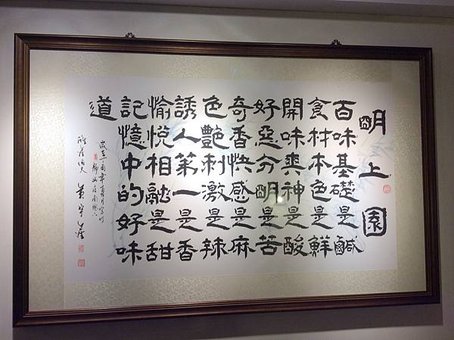 明上園
百味基礎是鹹
食材本色是鮮
開味爽神是酸
好惡分明是苦
奇香快感是麻
色艷刺激是辣
誘人第一是香
愉悅相融是甜
記憶中的好味
道